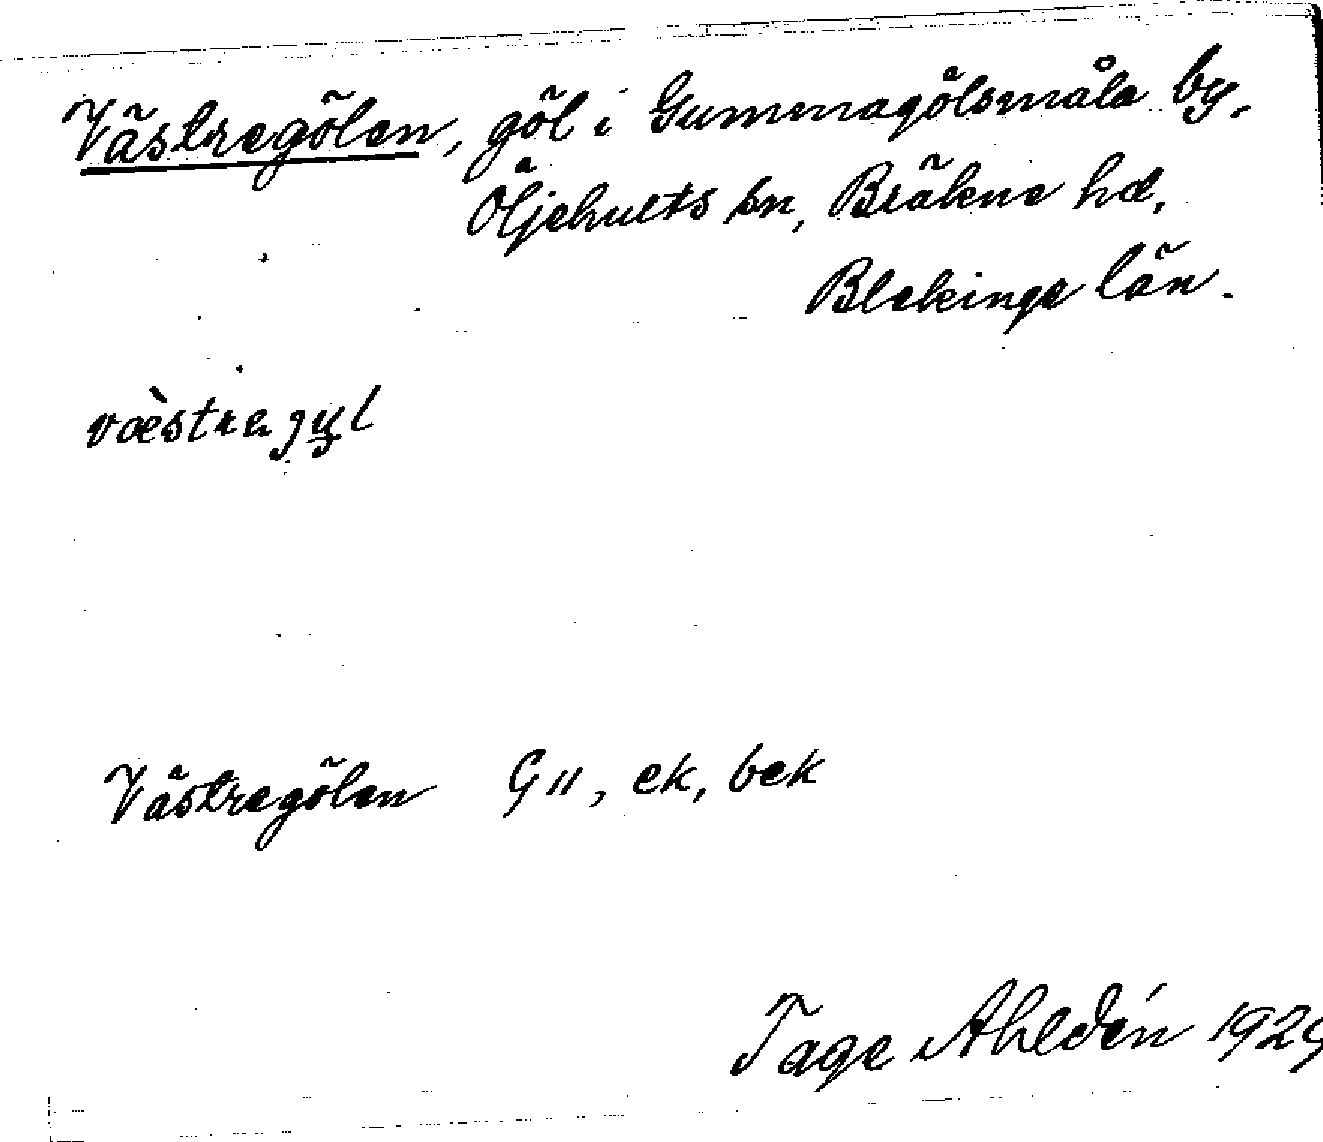 Västregölen, göl i Gummagölsmåla by,
Öljehults sn, Bräkne hd,
Blekinge län.
væ̀stragyl
Västregölen G11, ek, bek
Tage Ahldén 1929